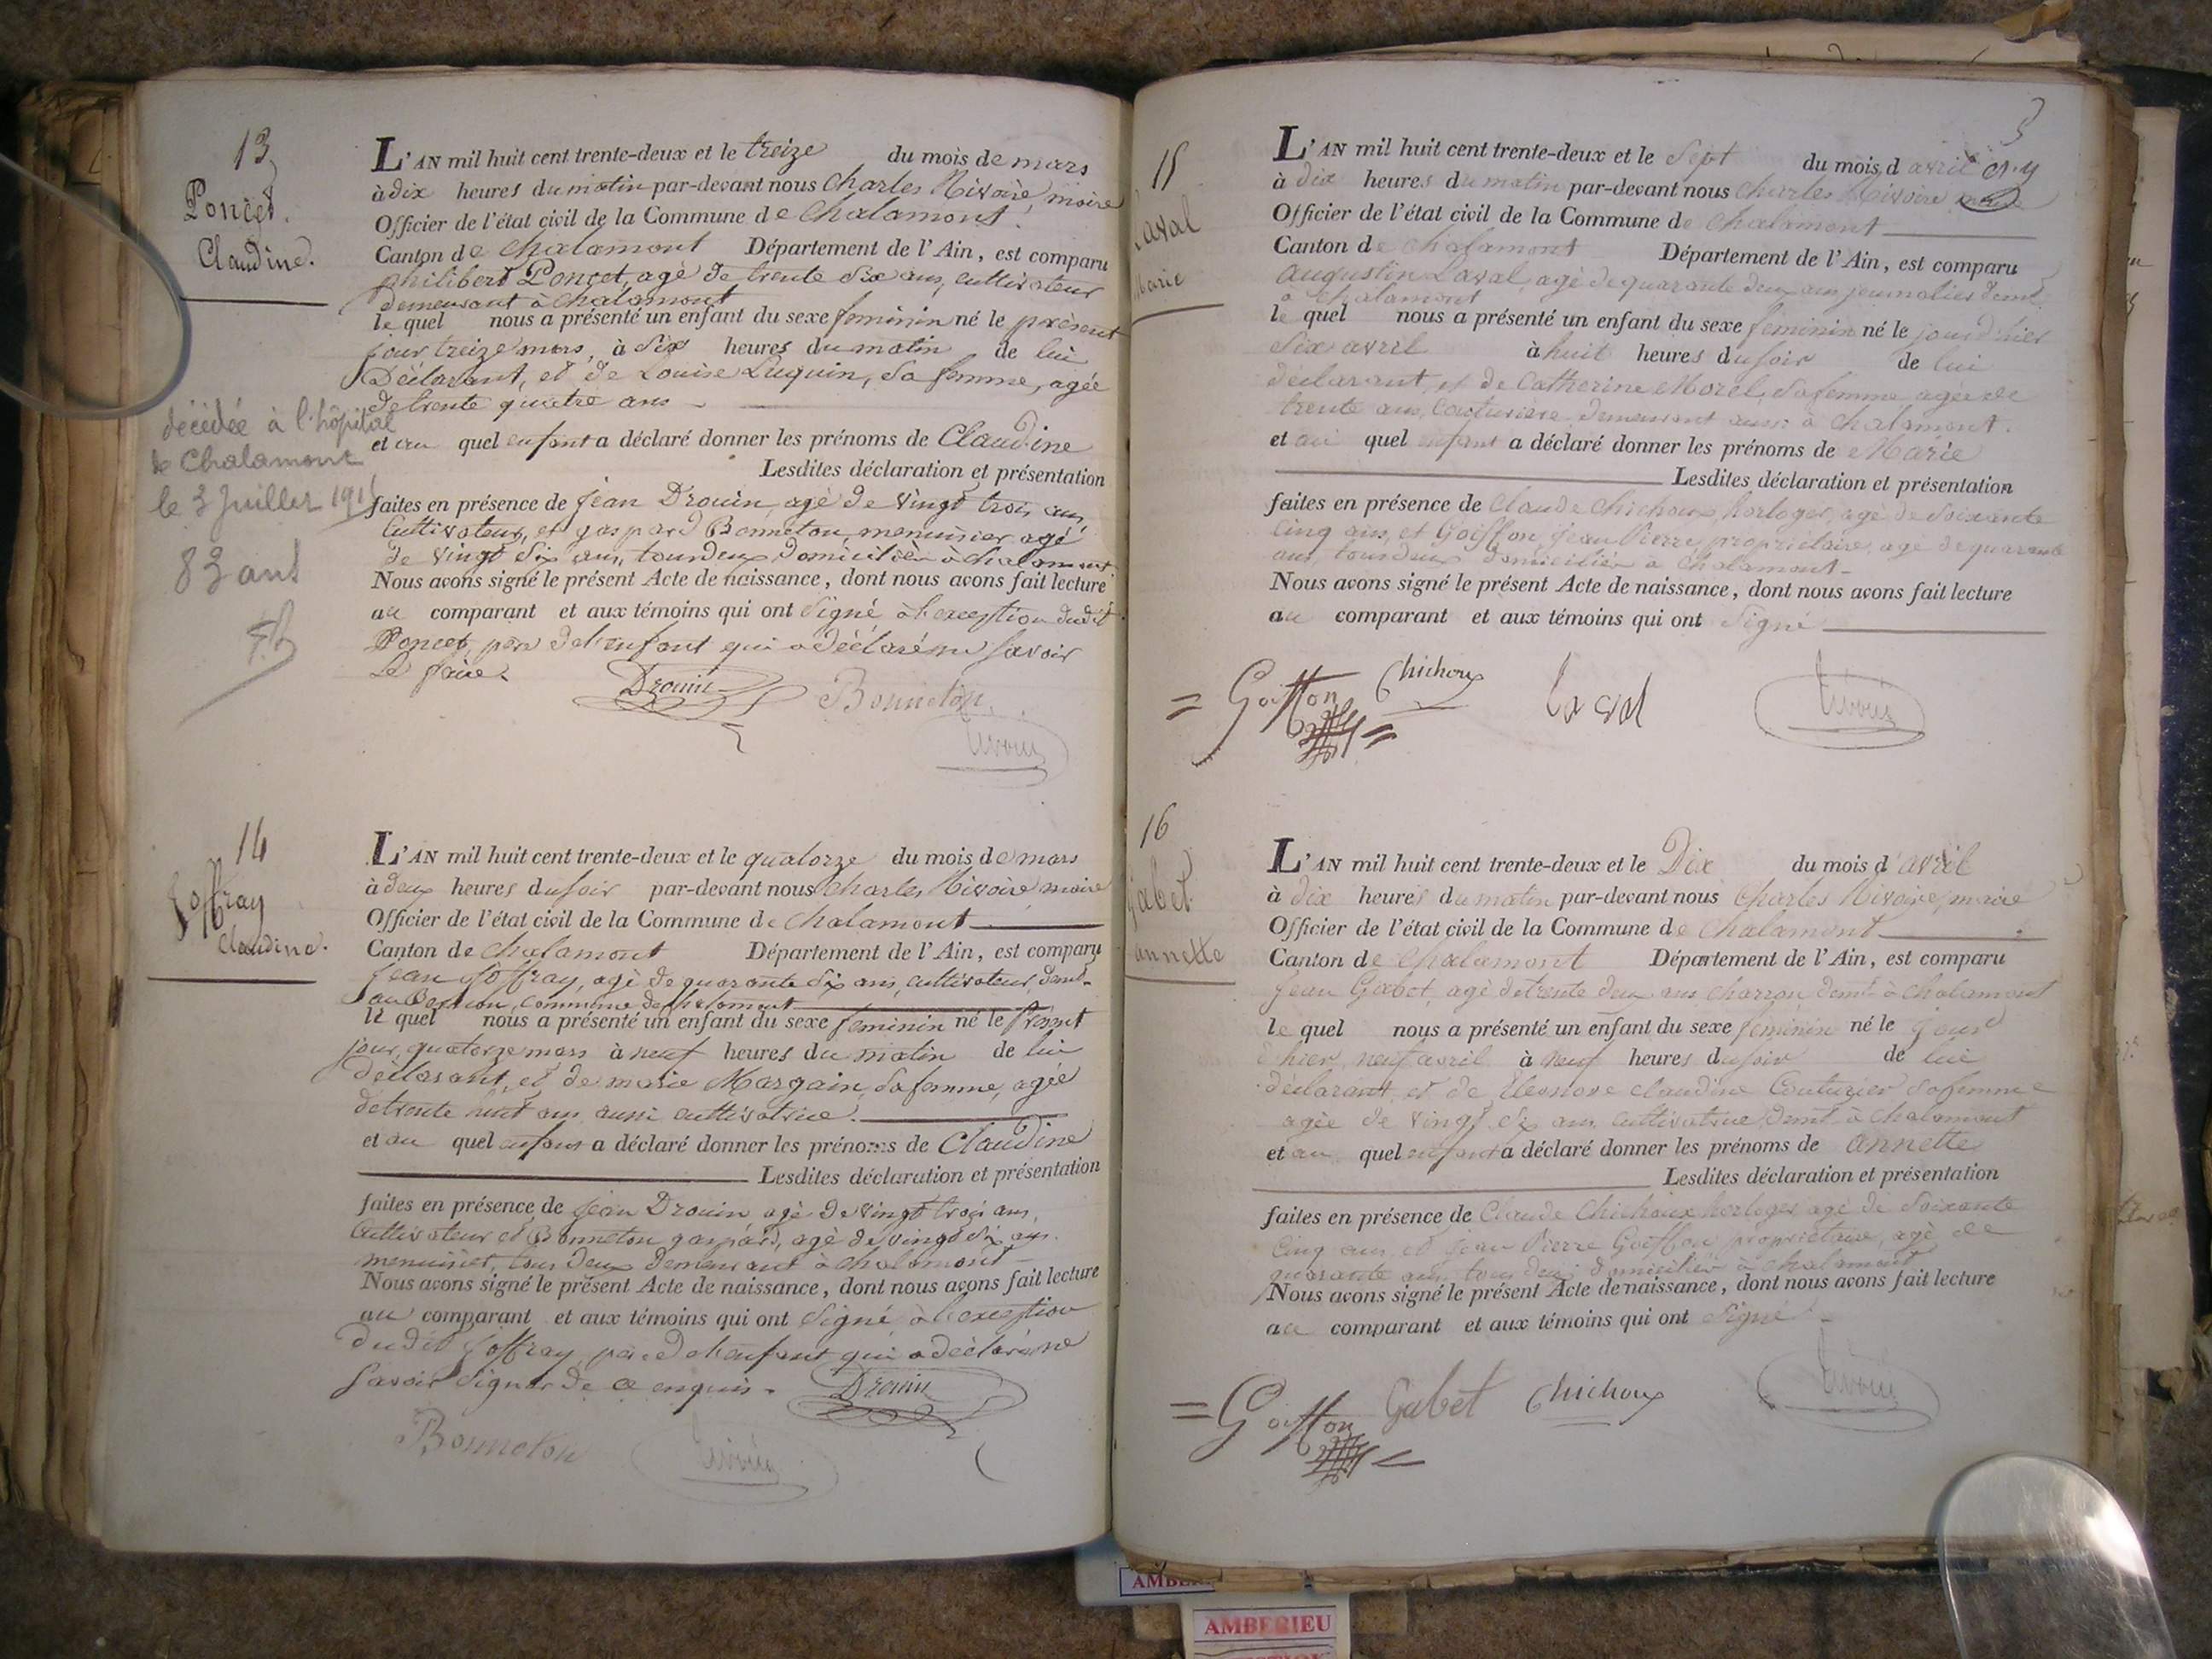 13
Poncet
Claudine.
L'AN mil huit cent trente-deux et le treize du mois de mars
à dix heures du matin par-devant nous Charles Rivoire, maire
Officier de l'état civil de la Commune de Chalamont
Canton de Chalamont Département de l'Ain, est comparu
philibert Poncet, agé de trente six ans, cultivateur
demeurant à Chalamont
le quel nous a présenté un enfant du sexe feminin né le présent
jour, treize mars, à six heures du matin de lui
Déclarant, et de Louise Luquin, sa femme, agée
de trente quatre ans
et au quel enfant a déclaré donner les prénoms de Claudine
Lesdites déclaration et présentation
faites en présence de Jean Drouin, agé de vingt trois ans,
Cultivateur, et gaspard Bonneton, menuisier, agé
de vingt six ans, tous deux domiciliés à Chalamont
Nous avons signé le présent Acte de naissance, dont nous avons fait lecture
au comparant et aux témoins qui ont Signé à l'exception dudit
Poncet, père de l'enfant qui a déclaré ne savoir
le faire
Drouin
Bonneton
Rivoire
décédée à l'hôpital
de Chalamont
le 3 Juillet 191
83 ans
14
Joffray
Claudine.
L'AN mil huit cent trente-deux et le quatorze du mois de mars
à deux heures du soir par-devant nous Charles Rivoire maire
Officier de l'état civil de la Commune de Chalamont
Canton de Chalamont Département de l'Ain, est comparu
Jean Joffray, agé de quarante six ans, cultivateur, demt
au commune de Chalamont
le quel nous a présenté un enfant du sexe feminin né le présent
jour, quatorze mars à neuf heures du matin de lui
déclarant, et de marie Margain, sa femme, agée
de trente huit ans aussi cultivatrice.
et au quel enfant a déclaré donner les prénoms de Claudine
Lesdites déclaration et présentation
faites en présence de Jean Drouin agé de vingt trois ans,
Cultivateur et Bonneton gaspard, agé de vingt six ans.
menuisier, tous deux demeurant à Chalamont
Nous avons signé le présent Acte de naissance, dont nous avons fait lecture
au comparant et aux témoins qui ont Signé à l'exception
du dit Joffray, père de l'enfant qui a déclaré ne
savoir Signer de ce enquis.
Drouin
Bonneton
Rivoire
3
15
Laval
Marie
L'AN mil huit cent trente-deux et le Sept du mois d avril
à dix heures du matin par-devant nous Charles Rivoire maire
Officier de l'état civil de la Commune de Chalamont
Canton de Chalamont Département de l'Ain, est comparu
augustin Laval, agé de quarante deux ans journalier demt
à Chalamont
le quel nous a présenté un enfant du sexe feminin né le jour d'hier
Six avril à huit heures du soir de lui
déclarant, et de Catherine Morel, sa femme agée de
trente ans, Couturière demeurant aussi à Chalamont.
et au quel enfant a déclaré donner les prénoms de Marie
Lesdites déclaration et présentation
faites en présence de Claude Chichoux, horloger, agé de Soixante
Cinq ans, et Goiffon, Jean Pierre, propriétaire, agé de quarante
ans, tous deux domiciliés à Chalamont
Nous avons signé le présent Acte de naissance, dont nous avons fait lecture
au comparant et aux témoins qui ont Signé
Goiffon
Chichoux
Laval
Rivoire
16
Gabet
annette
L'AN mil huit cent trente-deux et le Dix du mois d' avril
à dix heures du matin par-devant nous Charles Rivoire, maire
Officier de l'état civil de la Commune de Chalamont
Canton de Chalamont Département de l'Ain, est comparu
Jean Gabet, agé de trente deux ans charron, demt à Chalamont
le quel nous a présenté un enfant du sexe feminin né le jour
d'hier, neuf avril à neuf heures du soir de lui
déclarant, et de Eleonore Claudine Couturier sa femme
agée de vingt six ans, cultivatrice, demt à Chalamont
et au quel enfant a déclaré donner les prénoms de annette
Lesdites déclaration et présentation
faites en présence de Claude Chichoux horloger agé de Soixante
Cinq ans, et Jean Pierre Goiffon propriétaire, agé de
quarante ans, tous deux domiciliés à Chalamont
Nous avons signé le présent Acte de naissance, dont nous avons fait lecture
au comparant et aux témoins qui ont Signé
Goiffon
Gabet
Chichoux
Rivoire
AMBERIEU